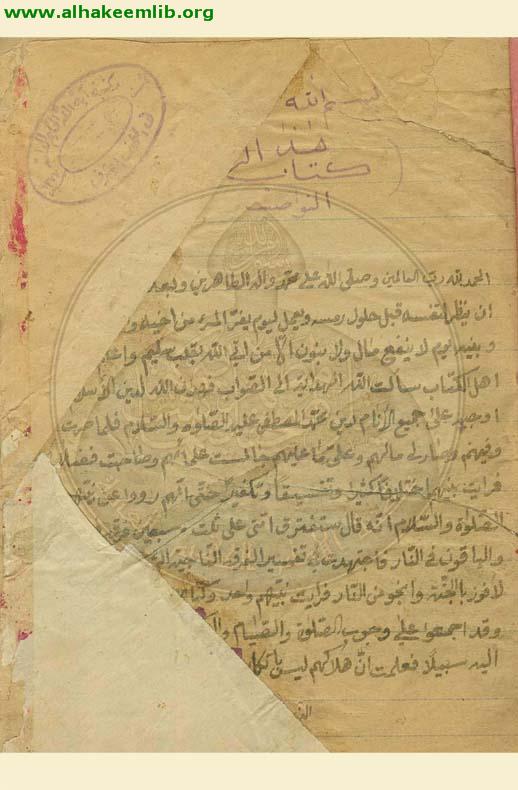 www.alhakeemlib.org
بسم الله
هذا
كتاب
الحمد لله رب العالمين وصلى الله على محمد واله الطاهرين وبعد
ان ينظر لنفسه قبل حلول رمسه ويعمل ليوم يفر المرء من اخيه و
و بنيه يوم لا ينفع مال ولا بنون الا من اتى الله بقلب سليم
اهل الكتاب سالت الله الهداية الى الصواب لدين
على جميع الانام لدين محمد المصطفى عليه الصلوة والسلام فلما
وفيهم وصار لي مالهم وعلي ما عليهم جالست علمائهم
فرايت بينهم اختلافا كثيرا وتفسيقا وتكفيرا حتى انهم رووا عن
الصلوة والسلام انه قال ستفترق امتي على ثلث وسبعين فرقة
والباقون في النار فاجتهدت في الفرقة الناجية
لافوز بالجنة وانجو من النار فرايت نبيهم واحد
وقد اجمعوا على وجوب الصلوة والصيام
اليه سبيلا فعلمت ان هلاكهم ليس